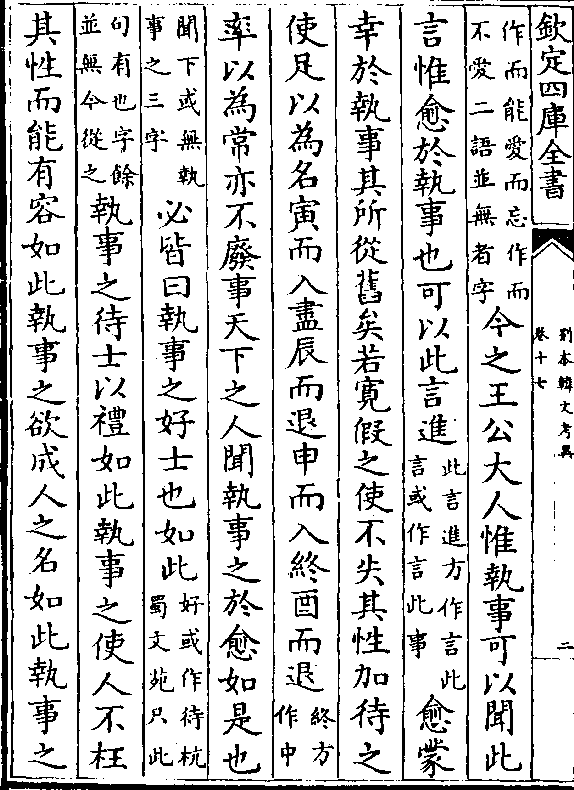 欽定四庫全書
别本韓文考異
卷十七
二
作而能愛而忘作而
不愛二語並無者字
今之王公大人惟執事可以聞此
言惟愈於執事也可以此言進
此言進方作言此
言或作言此事
愈蒙
幸於執事其所從舊矣若寛假之使不失其性加待之
使足以為名寅而入盡辰而退申而入終酉而退
終方
作中
率以為常亦不廢事天下之人聞執事之於愈如是也
聞下或無執
事之三字
必皆曰執事之好士也如此
好或作待杭
蜀文苑只此
句有也字餘
並無今從之
執事之待士以禮如此執事之使人不枉
其性而能有容如此執事之欲成人之名如此執事之